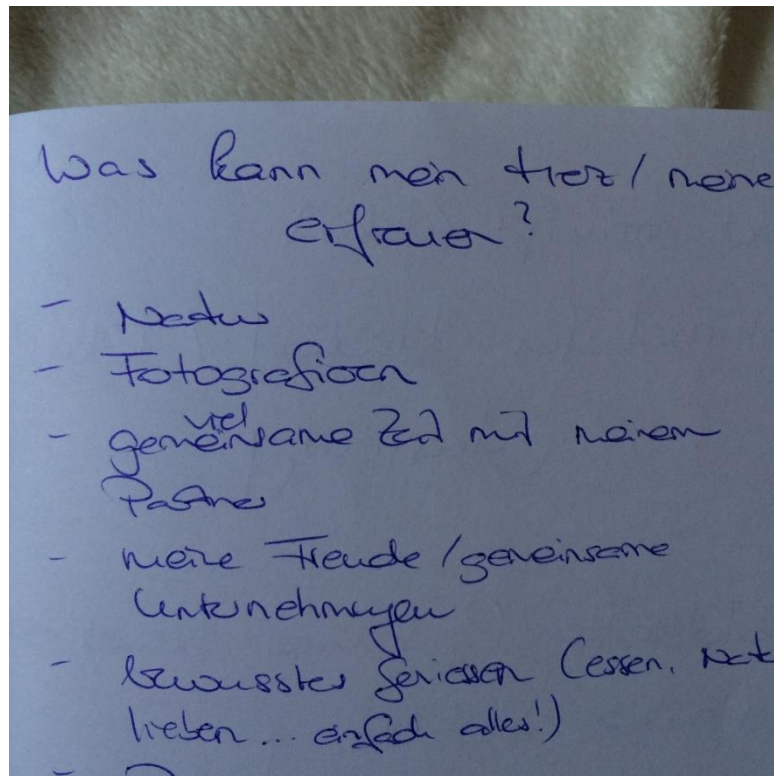 Was kann mein Herz / meine
erfreuen?
- Natur
- Fotografieren
viel
- gemeinsame Zeit mit meinem
Partner
- meine Freude / gemeinsame
Unternehmungen
- bewusstes geniessen (essen, Nat
lieben... einfach alles!)
-